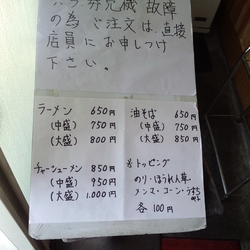 券売機 故障
の為 ご注文は、直接
店員にお申しつけ
下さい。
ラーメン 650円
(中盛) 750円
(大盛) 800円
チャーシューメン 850円
(中盛) 950円
(大盛) 1.000円
油そば 650円
(中盛) 750円
(大盛) 850円
トッピング
のり・ほうれん草・
メンマ・コーン・うずら
各 100円